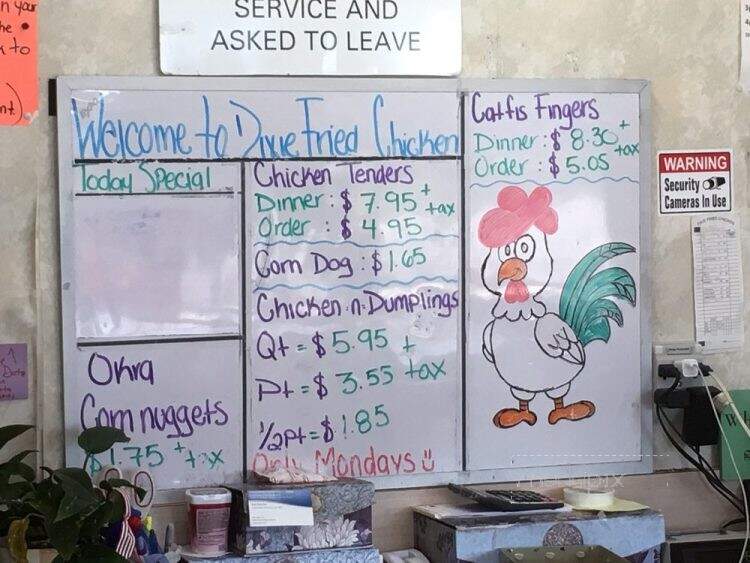 SERVICE AND
ASKED TO LEAVE
Welcome to Dixie Fried Chicken
Today Special
Okra
Corn nuggets
$1.75 + tax
Chicken Tenders
Dinner : $ 7.95 + tax
Order : $ 4.95
Corn Dog : $1.65
Chicken-n-Dumplings
Qt = $ 5.95 +
Pt = $ 3.55 tax
1/2 pt = $ 1.85
Only Mondays
Catfis Fingers
Dinner : $ 8.30 + tax
Order : $ 5.05
WARNING
Security
Cameras In Use